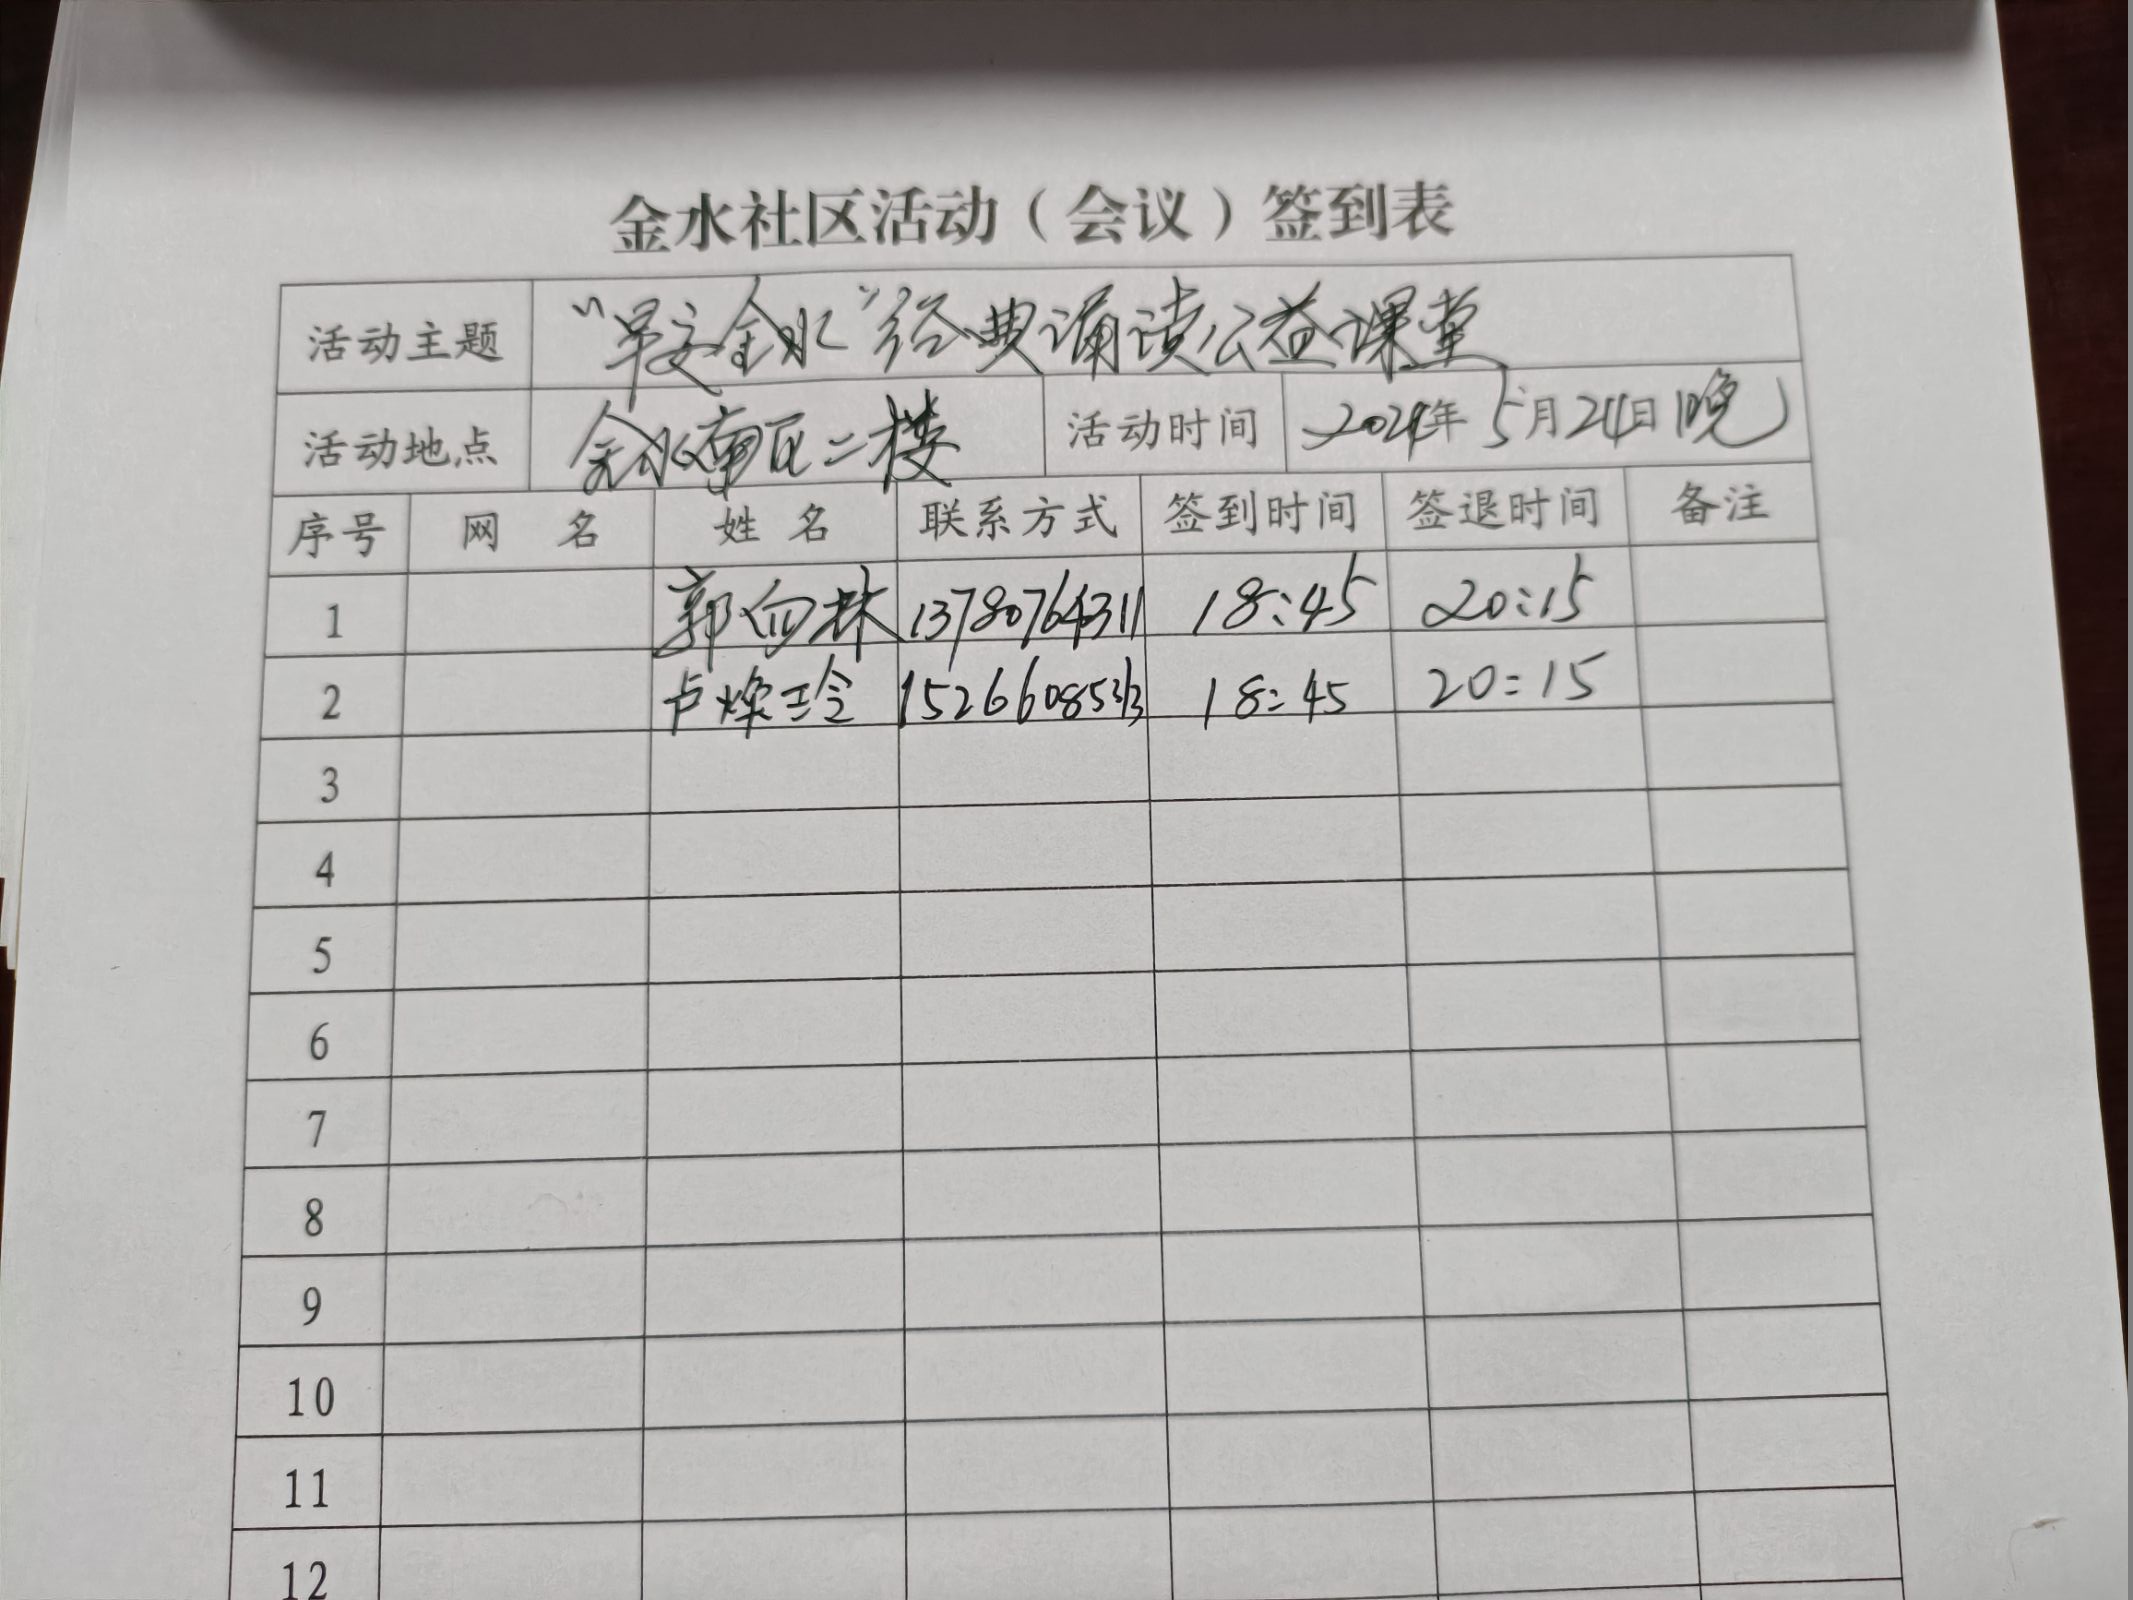 金水社区活动（会议）签到表
活动主题 “早安金水”经典诵读公益课堂
活动地点 金水南区二楼 活动时间 2024年5月24日晚
序号 网 名 姓 名 联系方式 签到时间 签退时间 备注
1 郭向林 13780764311 18:45 20:15
2 卢焕玲 15266085313 18:45 20:15
3
4
5
6
7
8
9
10
11
12